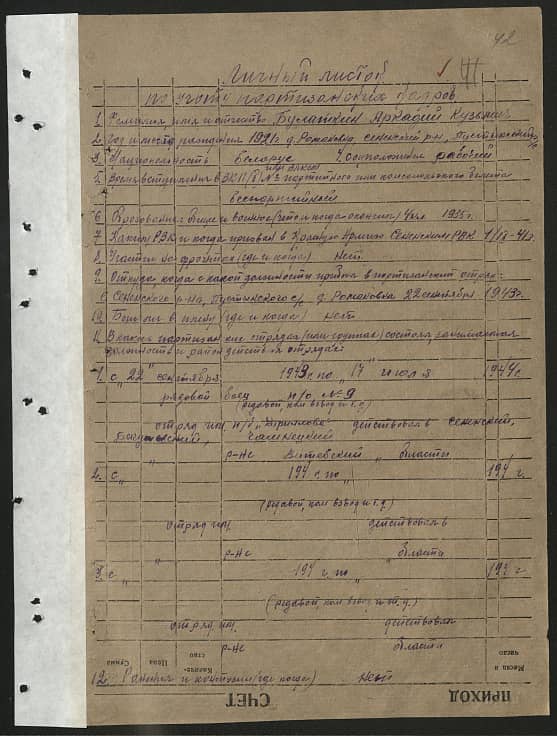 42
Личный листок
по учету партизанских кадров
1. Фамилия, имя и отчество Булаткин Аркадий Кузьмич
2. Год и место рождения 1921 г. д. Романовка, Сененский р-н, Пустынский с/с
3. Национальность Беларус 4. соцположение рабочий
5. Время вступления в ВКП/б/ или ВЛКСМ № партийного или комсомольского билета
беспартийный
6. Образование: общее и военное (что и когда окончил) 4 кл 1935 г.
7. Каким РВК и когда призван в Красную Армию Сененским РВК 41 г.
8. Участие на фронтах (где и когда) нет.
9. Откуда когда с какой должности прибыл в партизанский отряд:
с Сененского р-на, Пустынского с/с, д. Романовка 22 сентября 1943 г.
10. Был ли в плену (где и когда) нет
11. В каких партизанские отрядах (или группах) состоял, занимаемая
должность и район действия отряда:
1. с „22" сентября 1943 г. по „17" июля 1944 г.
рядовой боец п/о № 9
(рядовой, ком взвод и т.д)
отряд им. п/б действовал в Сененский,
р-не Витебский области
2. с „ 194 г. по „ 194 г.
(рядовой, ком взвод и т.д.)
отряд им. действовал в
р-не области
3. с „ 194 г. по „ 194 г.
(рядовой, ком взвод и т.д.)
отряд им. действовал
р-не области
12. Ранения и контузии (где когда) нет
Месяц и число
Количество
Цена
Сумма
ПРИХОД
СЧЕТ